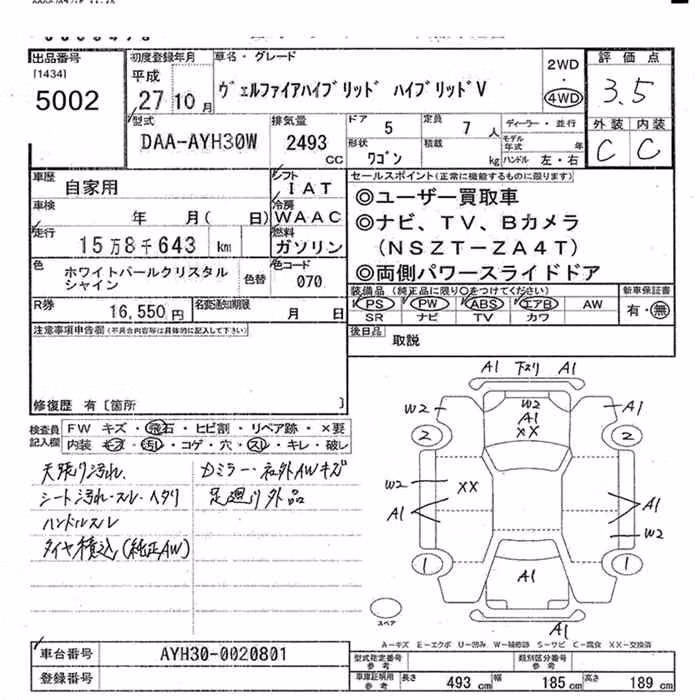 出品番号
[1434]
5002
初度登録年月
平成
27 10 月
車名・グレード
ヴェルファイアハイブリッド ハイブリッドV
2WD
・
4WD
評価点
3.5
外装 内装
C C
型式
DAA-AYH30W
排気量
2493
CC
ドア 5
定員 7 人
形状 ワゴン
積載 kg
ディーラー・並行
モデル年式 年
ハンドル 左・右
車歴 自家用
シフト IAT
車検 年 月( 日)
冷房 WAAC
走行 15万8千643 km
燃料 ガソリン
色 ホワイトパールクリスタル
シャイン
色替
色コード 070
R券 16,550 円
名変通知期限 月 日
セールスポイント(正常に機能するものに限ります)
◎ユーザー買取車
◎ナビ、TV、Bカメラ
(NSZT-ZA4T)
◎両側パワースライドドア
装備品(純正品に限り○をつけてください)
PS PW ABS エアB AW
SR ナビ TV カワ
新車保証書
有・無
後日品 取説
注意事項申告欄(不具合内容等は具体的に記入して下さい)
修復歴 有[箇所 ]
検査員
記入欄
FW キズ・飛石・ヒビ割・リペア跡・×要
内装 キズ・汚レ・コゲ・穴・スレ・キレ・破レ
天張り汚れ
シート汚れ・スレ・ヘタリ
ハンドルスレ
タイヤ積込(純正AW)
Dミラー・社外AWキズ
足廻り外品
A1 下スリ A1
W2 W2 A1
A1
XX
2 2
W2 XX
A1 A1
W2
1 1
A1
A1
スペア
A-キズ E-エクボ U-凹み W-補修跡 S-サビ C-腐食 XX-交換済
車台番号 AYH30-0020801
登録番号
型式指定番号
参考
類別区分番号
参考
車庫証明用
参考
長さ 493 cm 幅 185 cm 高さ 189 cm